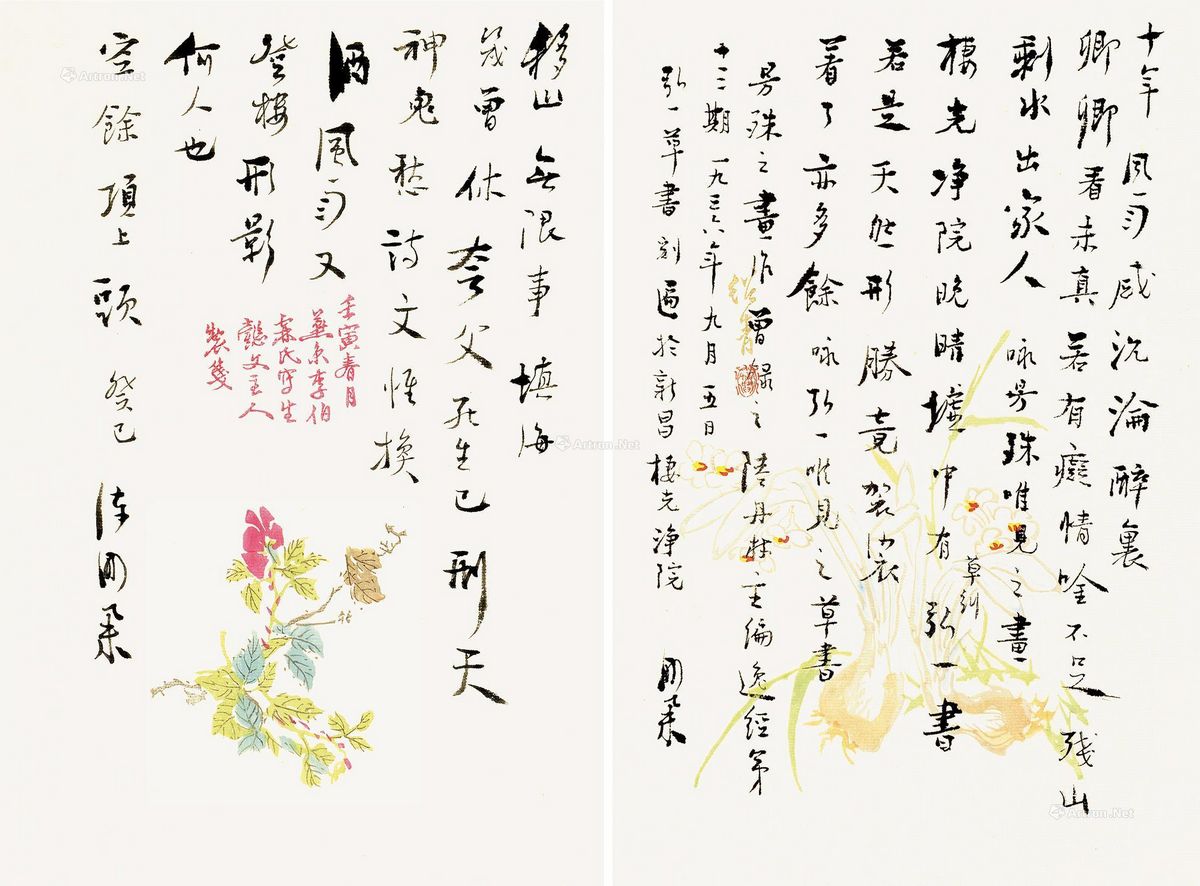 十年風雨感沉淪醉裏
卿卿看未真若有癡情唫不足殘山
剩水出家人咏曼殊唯見之畫
草到
棲光净院晚晴墟中有弘一書
若是天然形勝竟袈裟
着了亦多餘咏弘一唯見之草書
曼殊之畫作曾錄之陸丹林主編逸經第
十二期一九三六年九月五日
弘一草書刻匾於新昌棲光淨院
移山無限事填海
幾曾休夸父死生已刑天
神鬼愁詩文惟換
酒風雨又
登樓形影
何人也
空餘項上頭癸巳
壬寅春月
燕京李伯
霖氏寫生
懿文主人
製箋
Artron.Net
Artron.Net
Artron.Net